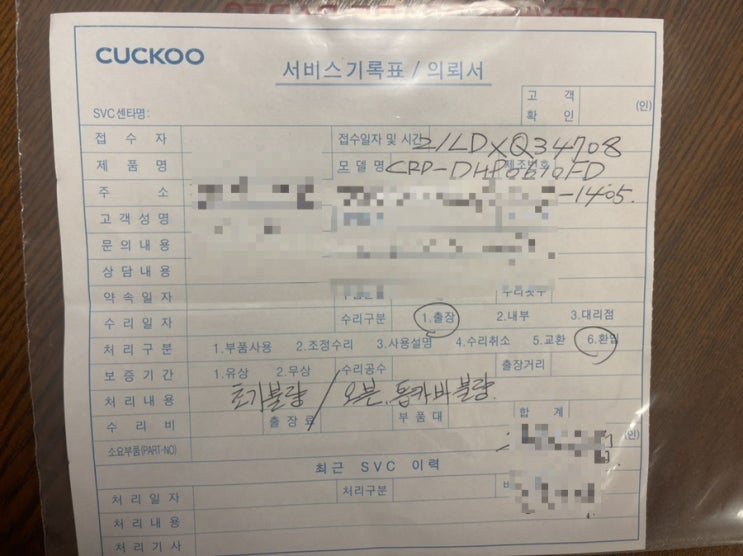 CUCKOO
서비스기록표 / 의뢰서
SVC센타명:
고 객 확 인 (인)
접 수 자 접수일자 및 시간 21LDXQ34708
제 품 명 모 델 명 CRP-DHP0610FD 제조번호
주 소 -1405.
고객성명
문의내용
상담내용
약속일자
수리일자 수리구분 1.출장 2.내부 3.대리점
처리구분 1.부품사용 2.조정수리 3.사용설명 4.수리취소 5.교환 6.환불
보증기간 1.유상 2.무상 수리공수 출장거리
처리내용 초기불량 / 오븐.통카바 불량.
수 리 비 출 장 료 부 품 대 합 계
소요부품(PART-NO) (인)
최근 SVC 이력
처리일자 처리구분
처리내용
처리기사